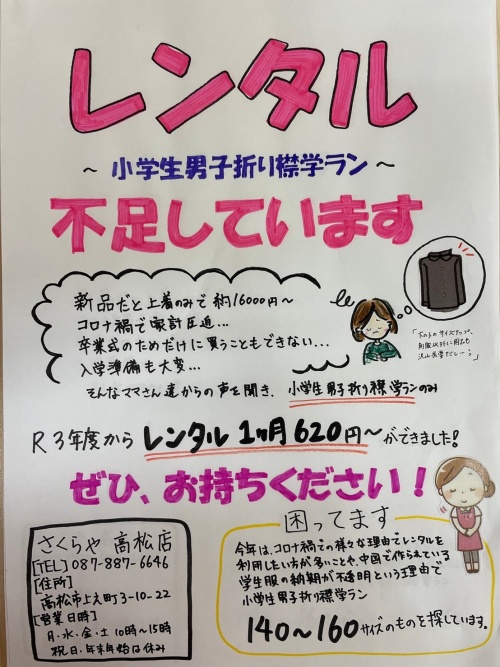 レンタル
～小学生男子折り襟学ラン～
不足しています
新品だと上着のみで約16000円～
コロナ禍で家計圧迫…
卒業式のためだけに買うこともできない…
入学準備も大変…
そんなママさん達からの声を聞き、小学生男子折り襟学ランのみ
R3年度からレンタル1ヶ月620円～ができました!
ぜひ、お持ちください!
困ってます
今年は、コロナ禍での様々な理由でレンタルを
利用したい方が多いことや、中国で作られている
学生服の納期が不透明という理由で
小学生男子折り襟学ラン
140～160サイズのものを探しています。
さくらや 高松店
[TEL] 087-887-6646
[住所]
高松市上之町3-10-22
[営業日時]
月・水・金・土 10時～15時
祝日・年末年始は休み